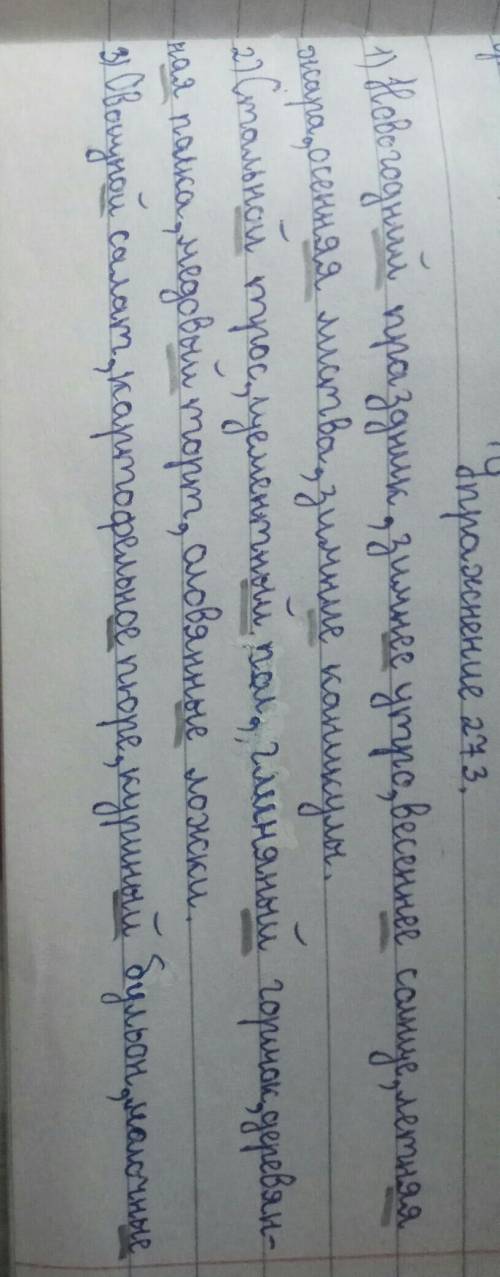 Упражнение 273.
1) Новогодний праздник, зимнее утро, весеннее солнце, летняя
жара, осенняя листва, зимние каникулы.
2) Стальной трос, цементный пол, глиняный горшок, деревян-
ная палка, медовый торт, оловянные ложки.
3) Овощной салат, картофельное пюре, куриный бульон, молочные